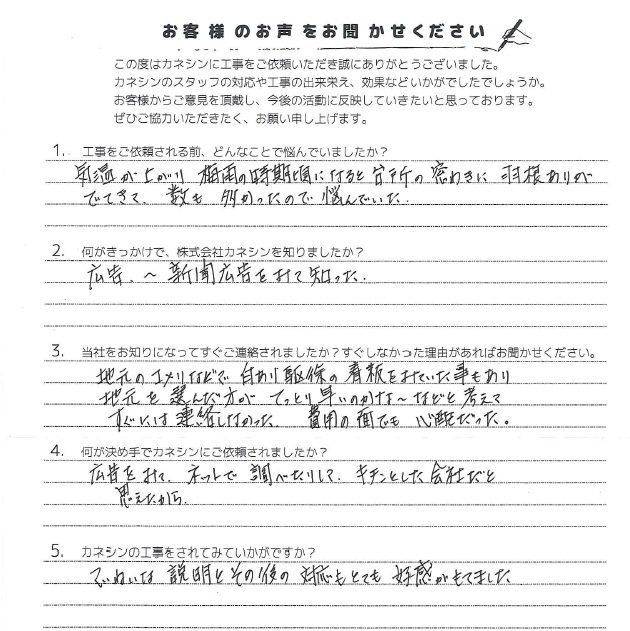 お客様のお声をお聞かせください
この度はカネシンに工事をご依頼いただき誠にありがとうございました。
カネシンのスタッフの対応や工事の出来栄え、効果などいかがでしたでしょうか。
お客様からご意見を頂戴し、今後の活動に反映していきたいと思っております。
ぜひご協力いただきたく、お願い申し上げます。
1. 工事をご依頼される前、どんなことで悩んでいましたか？
気温が上がり 梅雨の時期頃になると台所の窓わきに 羽根ありが
でてきて、数も 多かったので 悩んでいた。
2. 何がきっかけで、株式会社カネシンを知りましたか？
広告、〜 新聞広告をみて知った。
3. 当社をお知りになってすぐご連絡されましたか？すぐしなかった理由があればお聞かせください。
地元のコメリなどで 白あり駆除の 看板をみていた事もあり
地元を 選んだ方が てっとり早いのかな〜などと 考えて
すぐには 連絡しなかった。 費用の面でも 心配だった。
4. 何が決め手でカネシンにご依頼されましたか？
広告をみて、ネットで 調べたりして、キチンとした会社だと
思えたから。
5. カネシンの工事をされてみていかがですか？
ていねいな 説明とその後の 対応もとても 好感がもてました